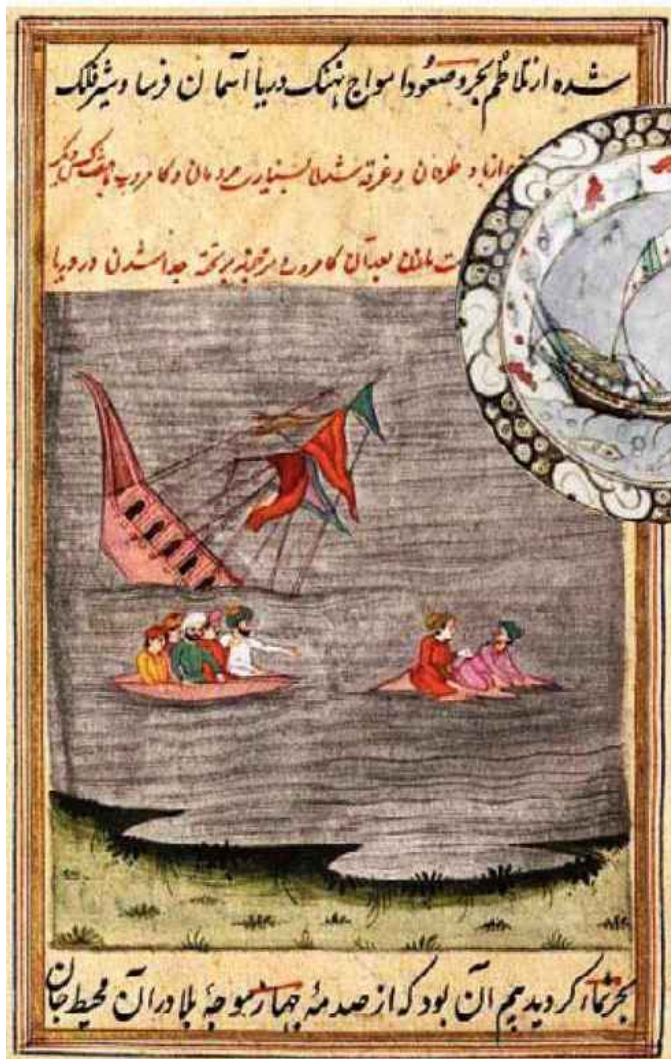 شده از تلاطم بحر و صعود امواج نهنک دریا آسمان فرسا و شیر فلک
از باد طوفان و غرقه شدن بسیاری مردمان و کامروپ با هفت کس دیگر
ماندن بعد آن کامروپ بر تخته جدا شدن در دریا
کردید بیم آن بود که از صدمهٔ چهار موجهٔ بلا در آن محیط جان